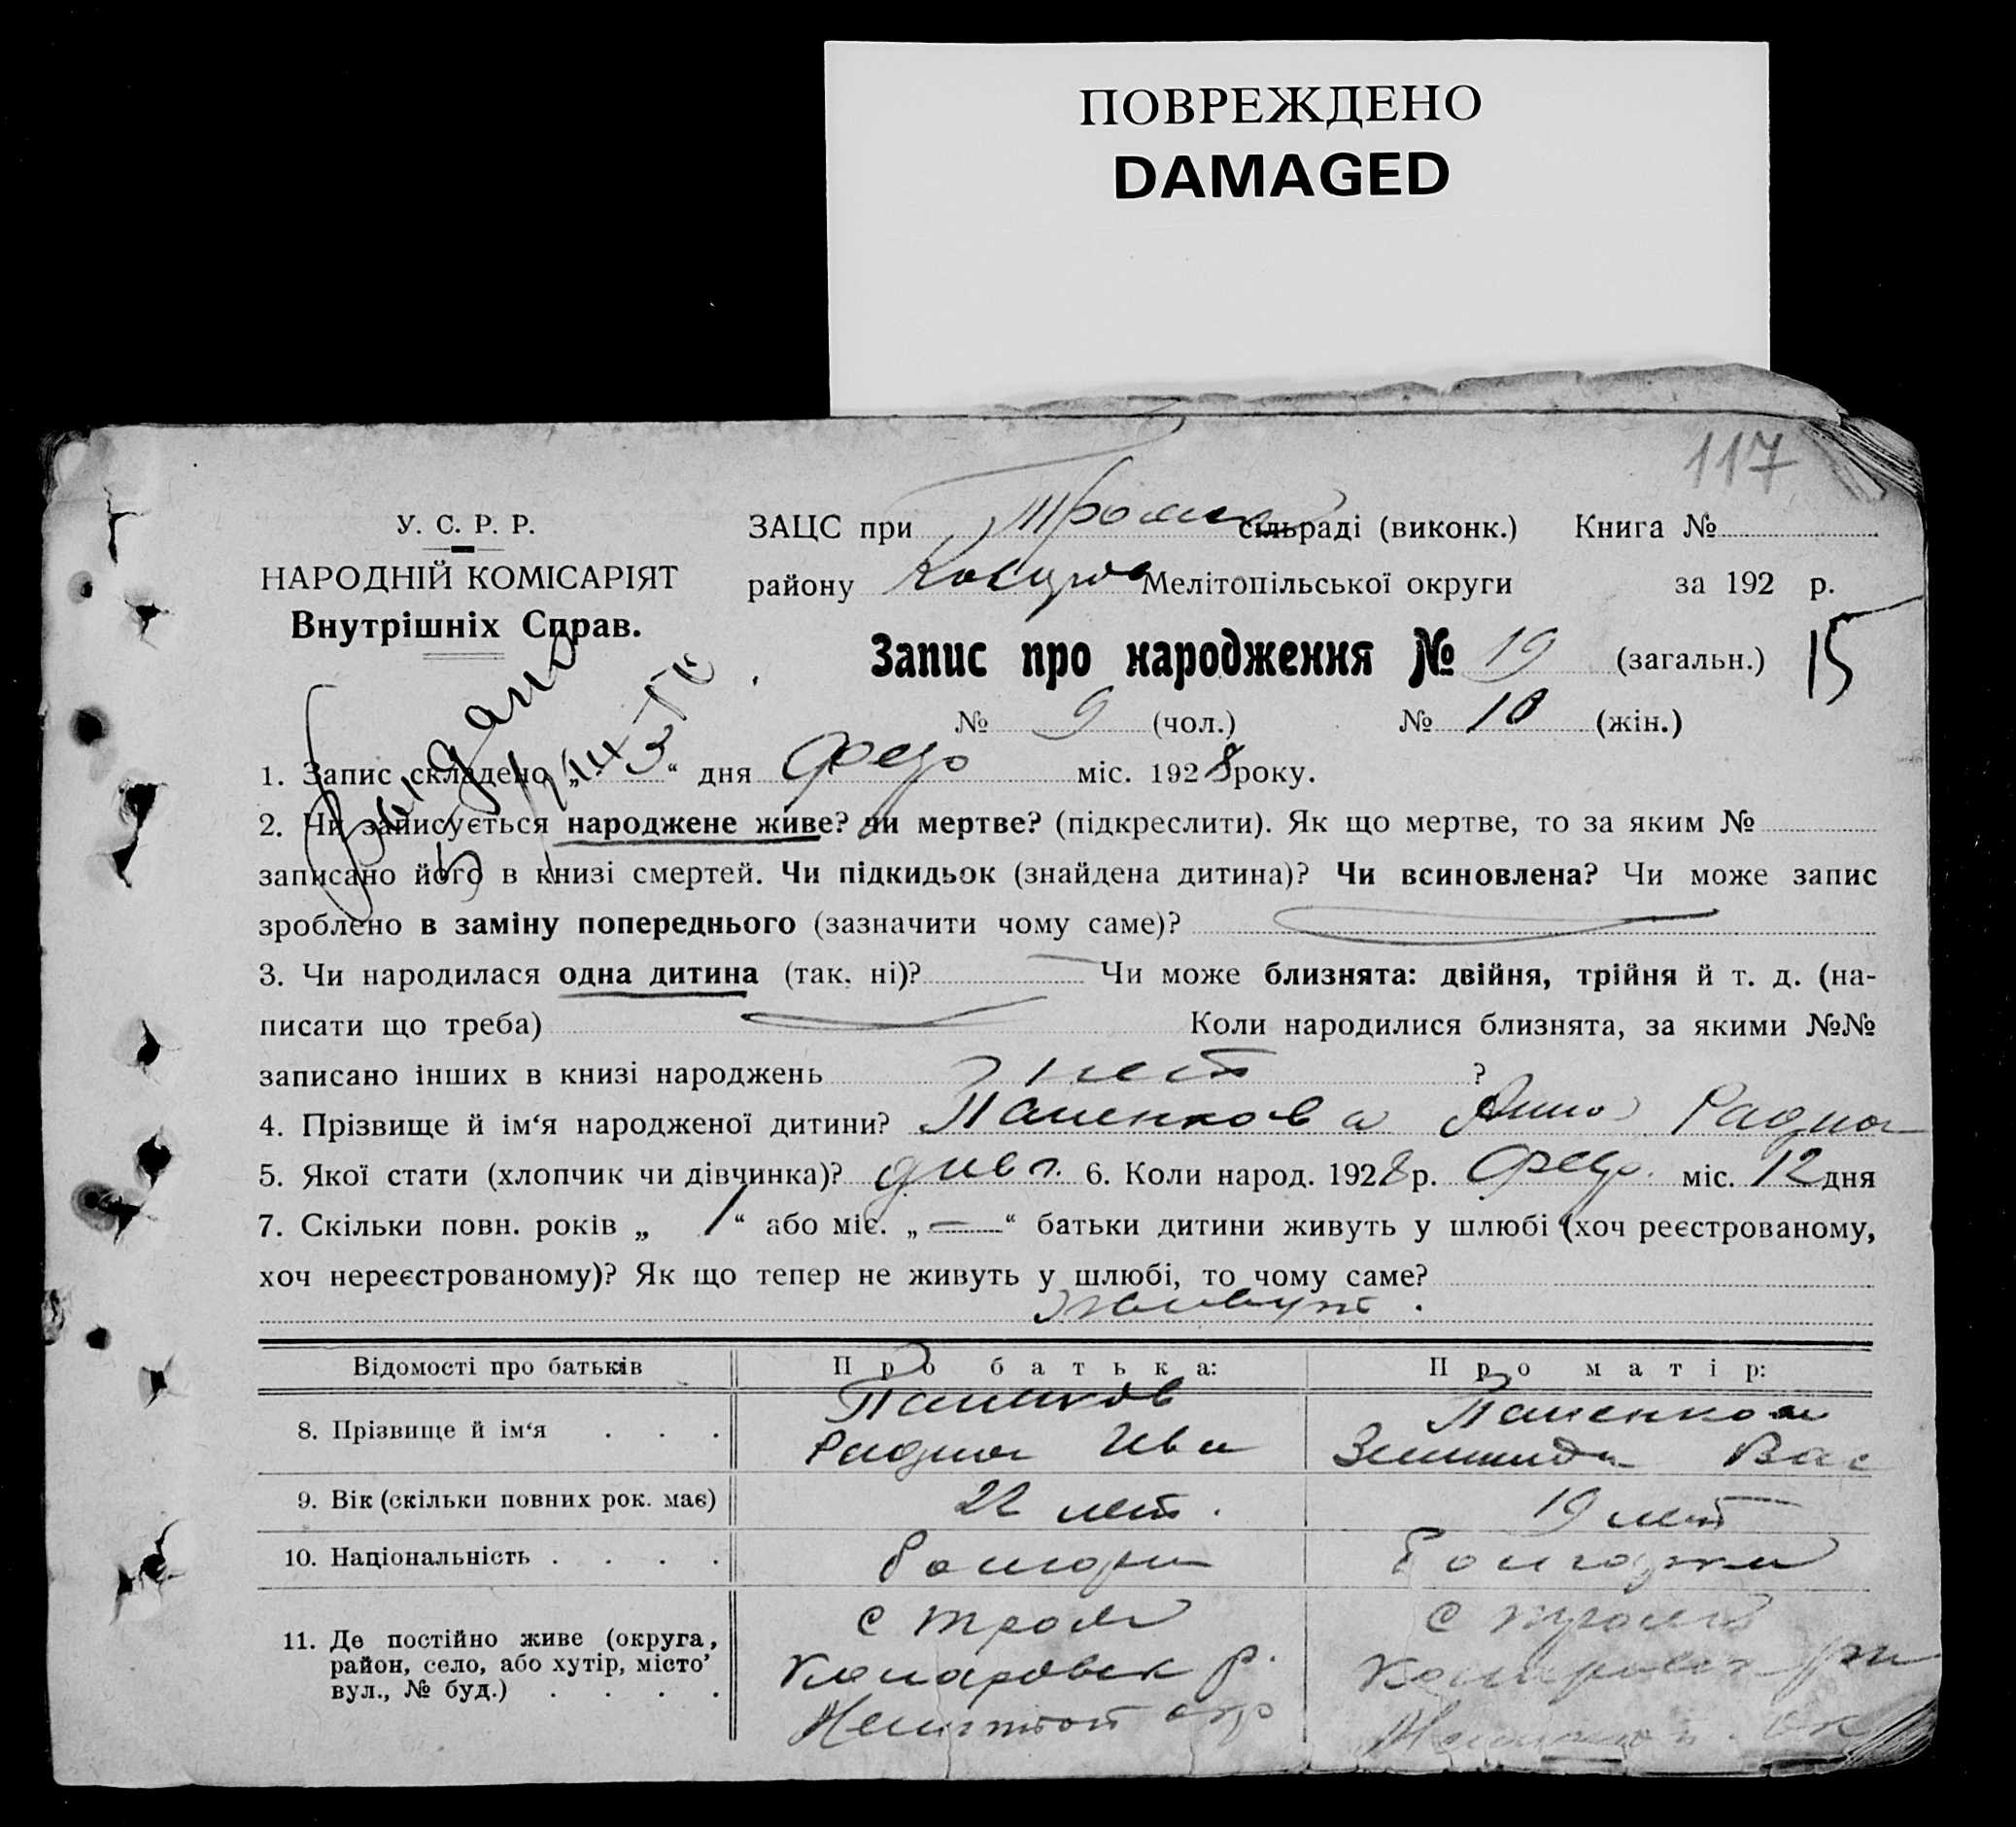 ПОВРЕЖДЕНО
DAMAGED
117
У. С. Р. Р.
НАРОДНІЙ КОМІСАРІЯТ
Внутрішніх Справ.
ЗАЦС при Троян сільраді (виконк.) Книга №
району Мелітопільської округи за 192 р.
Запис про народження № 19 (загальн.) 15
№ 9 (чол.) № 10 (жін.)
1. Запис складено „ 14 “ дня міс. 1928 року.
2. Чи записується народжене живе? чи мертве? (підкреслити). Як що мертве, то за яким №
записано його в книзі смертей. Чи підкидьок (знайдена дитина)? Чи всиновлена? Чи може запис
зроблено в заміну попереднього (зазначити чому саме)?
3. Чи народилася одна дитина (так, ні)? Чи може близнята: двійня, трійня й т. д. (на-
писати що треба) Коли народилися близнята, за якими №№
записано інших в книзі народжень нет ?
4. Прізвище й ім‘я народженої дитини? Пашенкова Анна
5. Якої стати (хлопчик чи дівчинка)? 6. Коли народ. 1928 р. міс. 12 дня
7. Скільки повн. років „ 1 “ або міс. „ — “ батьки дитини живуть у шлюбі (хоч реєстрованому,
хоч нереєстрованому)? Як що тепер не живуть у шлюбі, то чому саме?
живут.
Відомості про батьків Про батька: Про матір:
8. Прізвище й ім‘я . . . Пашиков Пашенкова
Ива Зинаида Вас
9. Вік (скільки повних рок. має) 22 лет. 19 лет
10. Національність . . . . болгари Болгарка
11. Де постійно живе (округа, с Троян с Троян
район, село, або хутір, місто’
вул., № буд.) . . . .